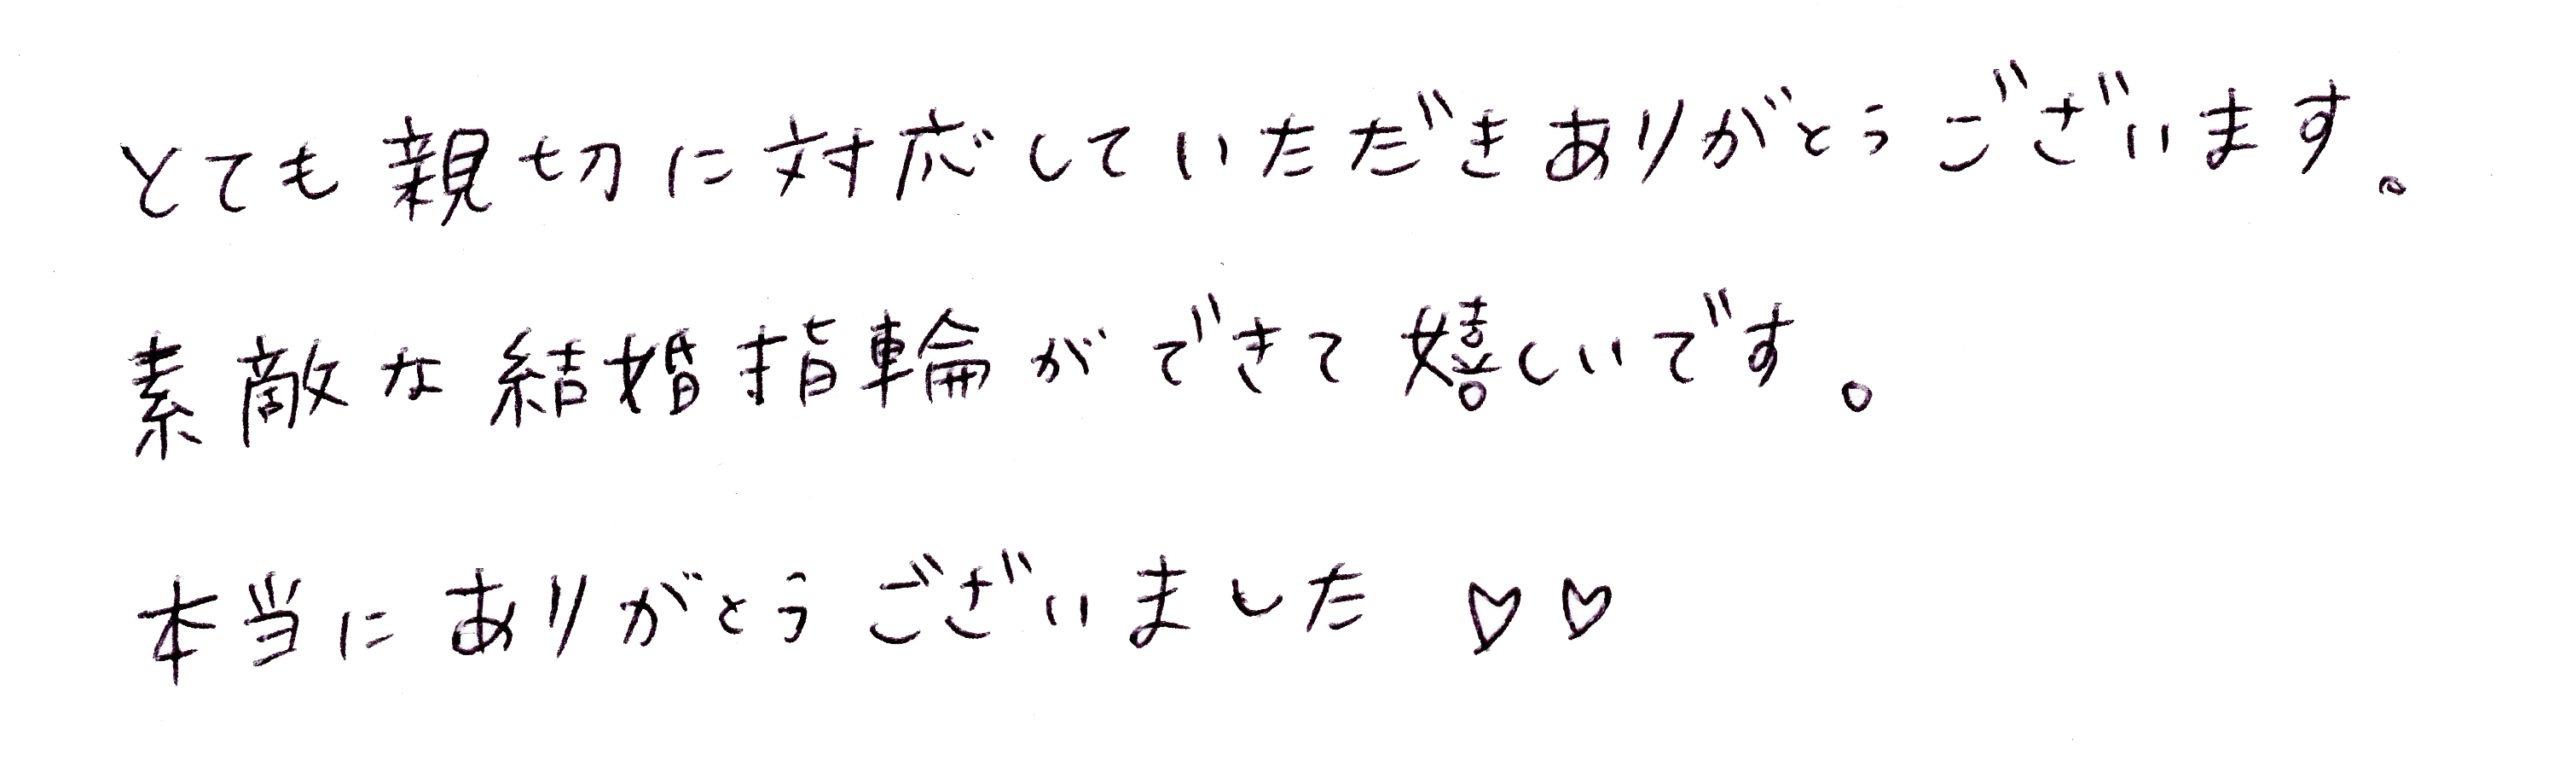 とても親切に対応していただきありがとうございます。
素敵な結婚指輪ができて嬉しいです。
本当にありがとうございました♡♡